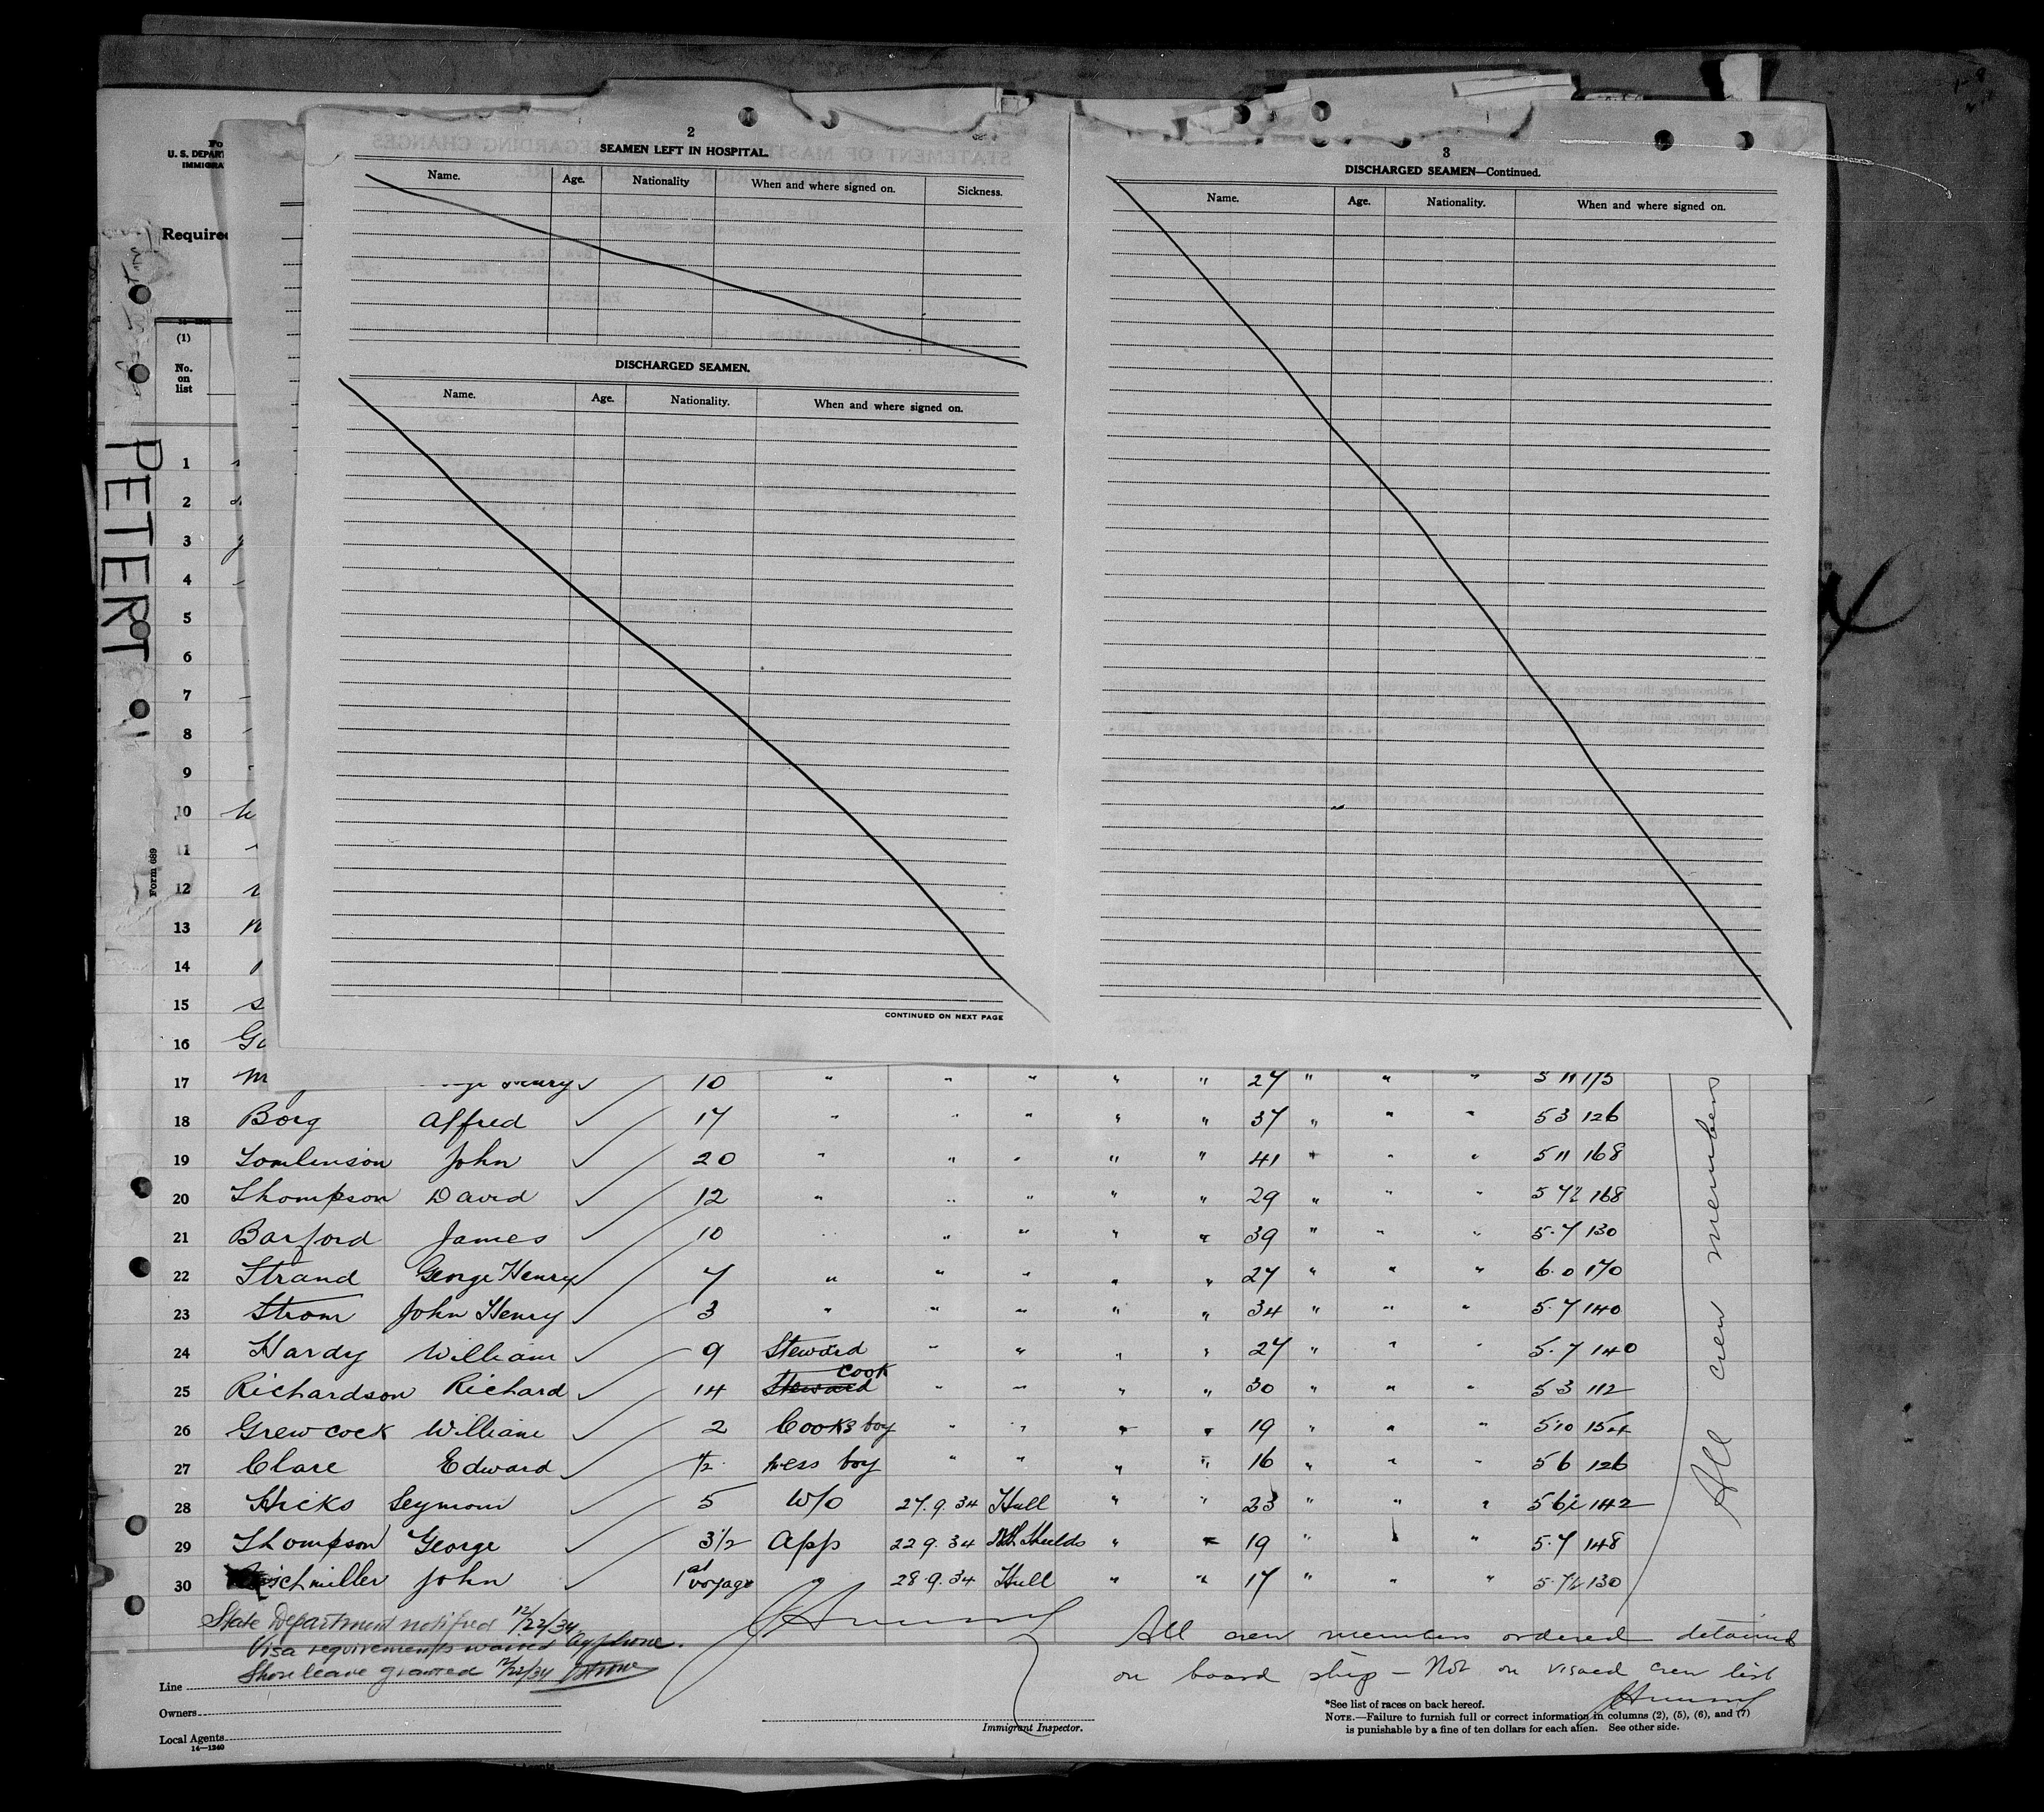 2
SEAMEN LEFT IN HOSPITAL.
Name. Age. Nationality When and where signed on. Sickness.
DISCHARGED SEAMEN.
Name. Age. Nationality. When and where signed on.
CONTINUED ON NEXT PAGE
3
DISCHARGED SEAMEN—Continued.
Name. Age. Nationality. When and where signed on.
U. S. DEPART
IMMIGRA
Required
(1)
No.
on
list
PETERT
Form 689
1
2
3
4
5
6
7
8
9
10
11
12
13
14
15
16 Go
17 M Henry ✓ 10 " " " " " 27 " " " 5 11 175
18 Borg Alfred ✓ 17 " " " " " 37 " " " 5 3 126
19 Tomlinson John ✓ 20 " " " " " 41 " " " 5 11 168
20 Thompson David ✓ 12 " " " " " 29 " " " 5 7½ 168
21 Barford James ✓ 10 " " " " " 39 " " " 5.7 130
22 Strand George Henry ✓ 7 " " " " " 27 " " " 6.0 170
23 Strom John Henry ✓ 3 " " " " " 34 " " " 5.7 140
24 Hardy William ✓ 9 Steward " " " " 27 " " " 5.7 140
25 Richardson Richard ✓ 14 Steward cook " " " " 30 " " " 5 3 112
26 Grewcock William ✓ 2 Cooks boy " " " " 19 " " " 5 10 154
27 Clare Edward ✓ 1/2 Mess boy " " " " 16 " " " 5 6 126
28 Hicks Seymour ✓ 5 W/O 27.9.34 Hull " " 23 " " " 5 6½ 142
29 Thompson George ✓ 3½ App 22 9.34 Nth Shields " " 19 " " " 5.7 148
30 schmiller John ✓ 1st voyage " 28.9.34 Hull " " 17 " " " 5.7½ 130
All crew members
State Department notified 12/22/34.
Visa requirements waived by phone.
Shore leave granted 12/22/34
All crew members ordered detained
on board ship – Not on visaed crew list
Line
Owners
Local Agents
14—1240
Immigrant Inspector.
*See list of races on back hereof.
NOTE.—Failure to furnish full or correct information in columns (2), (5), (6), and (7)
is punishable by a fine of ten dollars for each alien. See other side.